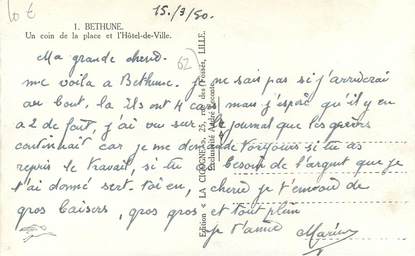 10 €
15./3/50.
1. BETHUNE.
Un coin de la place et l'Hôtel-de-Ville.
(62)
Ma grande cherie.
me voila a Bethune. je ne sais pas si j'arriverai
au bout, la Ils ont 4 cars mais j'espère qu'il y en
a 2 de fait, j'ai vu sur le journal que les grèves
continuait car je me demande toujours si tu as
repris le travail, si tu a besoin de l'argent que je
t'ai donné sert-toi en, cherie je t'envoie de
gros baisers, gros gros et tout plein
je t'aime
Edition « LA CIGOGNE », 25, rue des Fossés, LILLE.
Exclusivité André Leconte